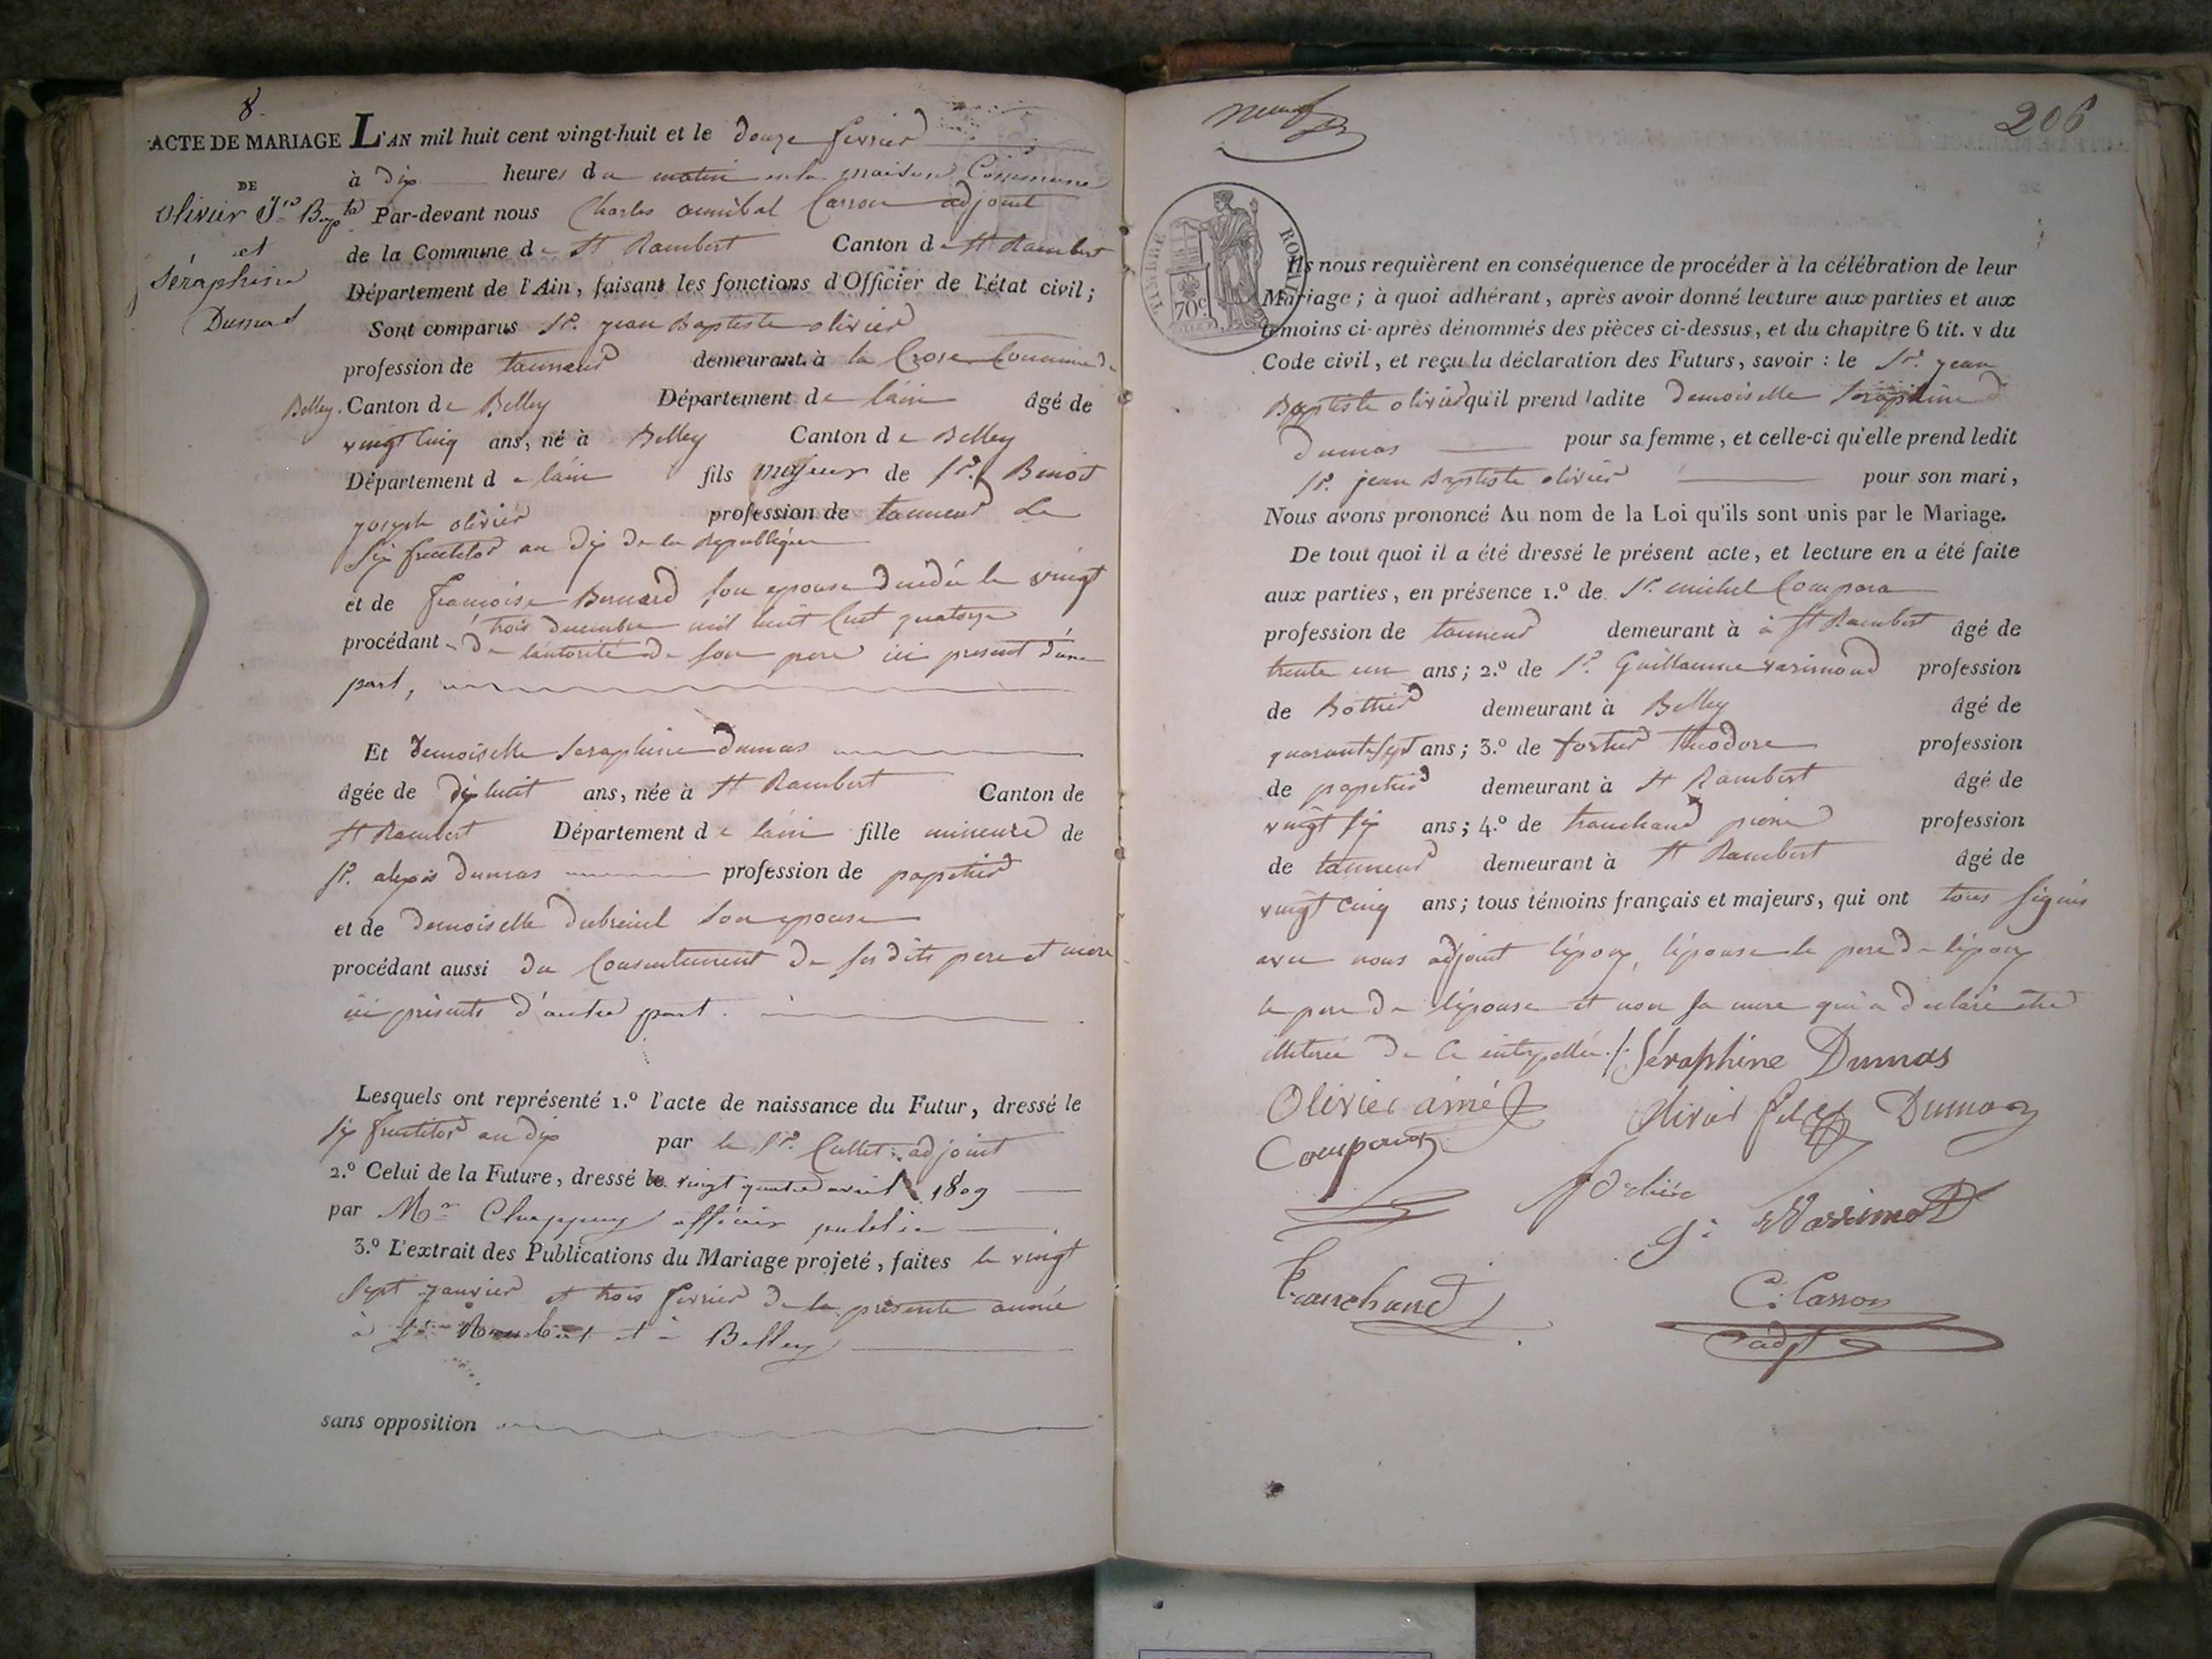 8.
ACTE DE MARIAGE
DE
Olivier Jn Bapte
et
Séraphine
Dumas
L'AN mil huit cent vingt-huit et le douze fevrier
à dix heures du matin en la maison Commune
Par-devant nous Charles annibal Carron adjoint
de la Commune de St Rambert Canton de St Rambert
Département de l'Ain, faisant les fonctions d'Officier de l'état civil;
Sont comparus Sr. jean Baptiste olivier
profession de tanneur demeurant à la Crose Commune de
Belley. Canton de Belley Département de l'ain âgé de
vingt Cinq ans, né à Belley Canton de Belley
Département de l'ain fils majeur de Sr. Benoit
joseph olivier profession de tanneur Le
Six fructidor an dix de la Republique
et de françoise Bernard son epouse decedée le vingt
trois decembre mil huit Cent quatorze
procédant de l'autorité de son pere ici present d'une
part,
Et demoiselle Seraphine dumas
âgée de dix huit ans, née à St Rambert Canton de
St Rambert Département de l'ain fille mineure de
Sr. alexis dumas profession de papetier
et de demoiselle dubreuil son epouse
procédant aussi du Consentement de ses dits pere et mere
ici présents d'autre part.
Lesquels ont représenté 1.º l'acte de naissance du Futur, dressé le
Six fructidor an dix par le Sr. Cullet adjoint
2.º Celui de la Future, dressé le vingt quatre avril 1809
par Mr officier public
3.º L'extrait des Publications du Mariage projeté, faites le vingt
Sept janvier et trois fevrier de la présente année
à St Rambert et à Belley
sans opposition
neuf
206
TIMBRE ROYAL
70c
Ils nous requièrent en conséquence de procéder à la célébration de leur
Mariage; à quoi adhérant, après avoir donné lecture aux parties et aux
témoins ci-après dénommés des pièces ci-dessus, et du chapitre 6 tit. v du
Code civil, et reçu la déclaration des Futurs, savoir : le Sr. jean
Baptiste olivier qu'il prend ladite demoiselle Séraphine
dumas pour sa femme, et celle-ci qu'elle prend ledit
Sr. jean Baptiste olivier pour son mari,
Nous avons prononcé Au nom de la Loi qu'ils sont unis par le Mariage.
De tout quoi il a été dressé le présent acte, et lecture en a été faite
aux parties, en présence 1.º de Sr. michel
profession de tanneur demeurant à à St Rambert âgé de
trente un ans; 2.º de Sr. Guillaume varimond profession
de Bottier demeurant à Belley âgé de
quarante Sept ans; 3.º de fortier théodore profession
de papetier demeurant à St Rambert âgé de
vingt Six ans; 4.º de tranchand pierre profession
de tanneur demeurant à St Rambert âgé de
vingt Cinq ans; tous témoins français et majeurs, qui ont tous Signés
avec nous adjoint l'époux, l'épouse le pere de l'époux
le pere de l'épouse et non sa mere qui a declaré etre
illiterée de ce interpellée./. Séraphine Dumas
Olivier ainé Olivier fils Dumas
G:
Tranchand C: Carron
adjt